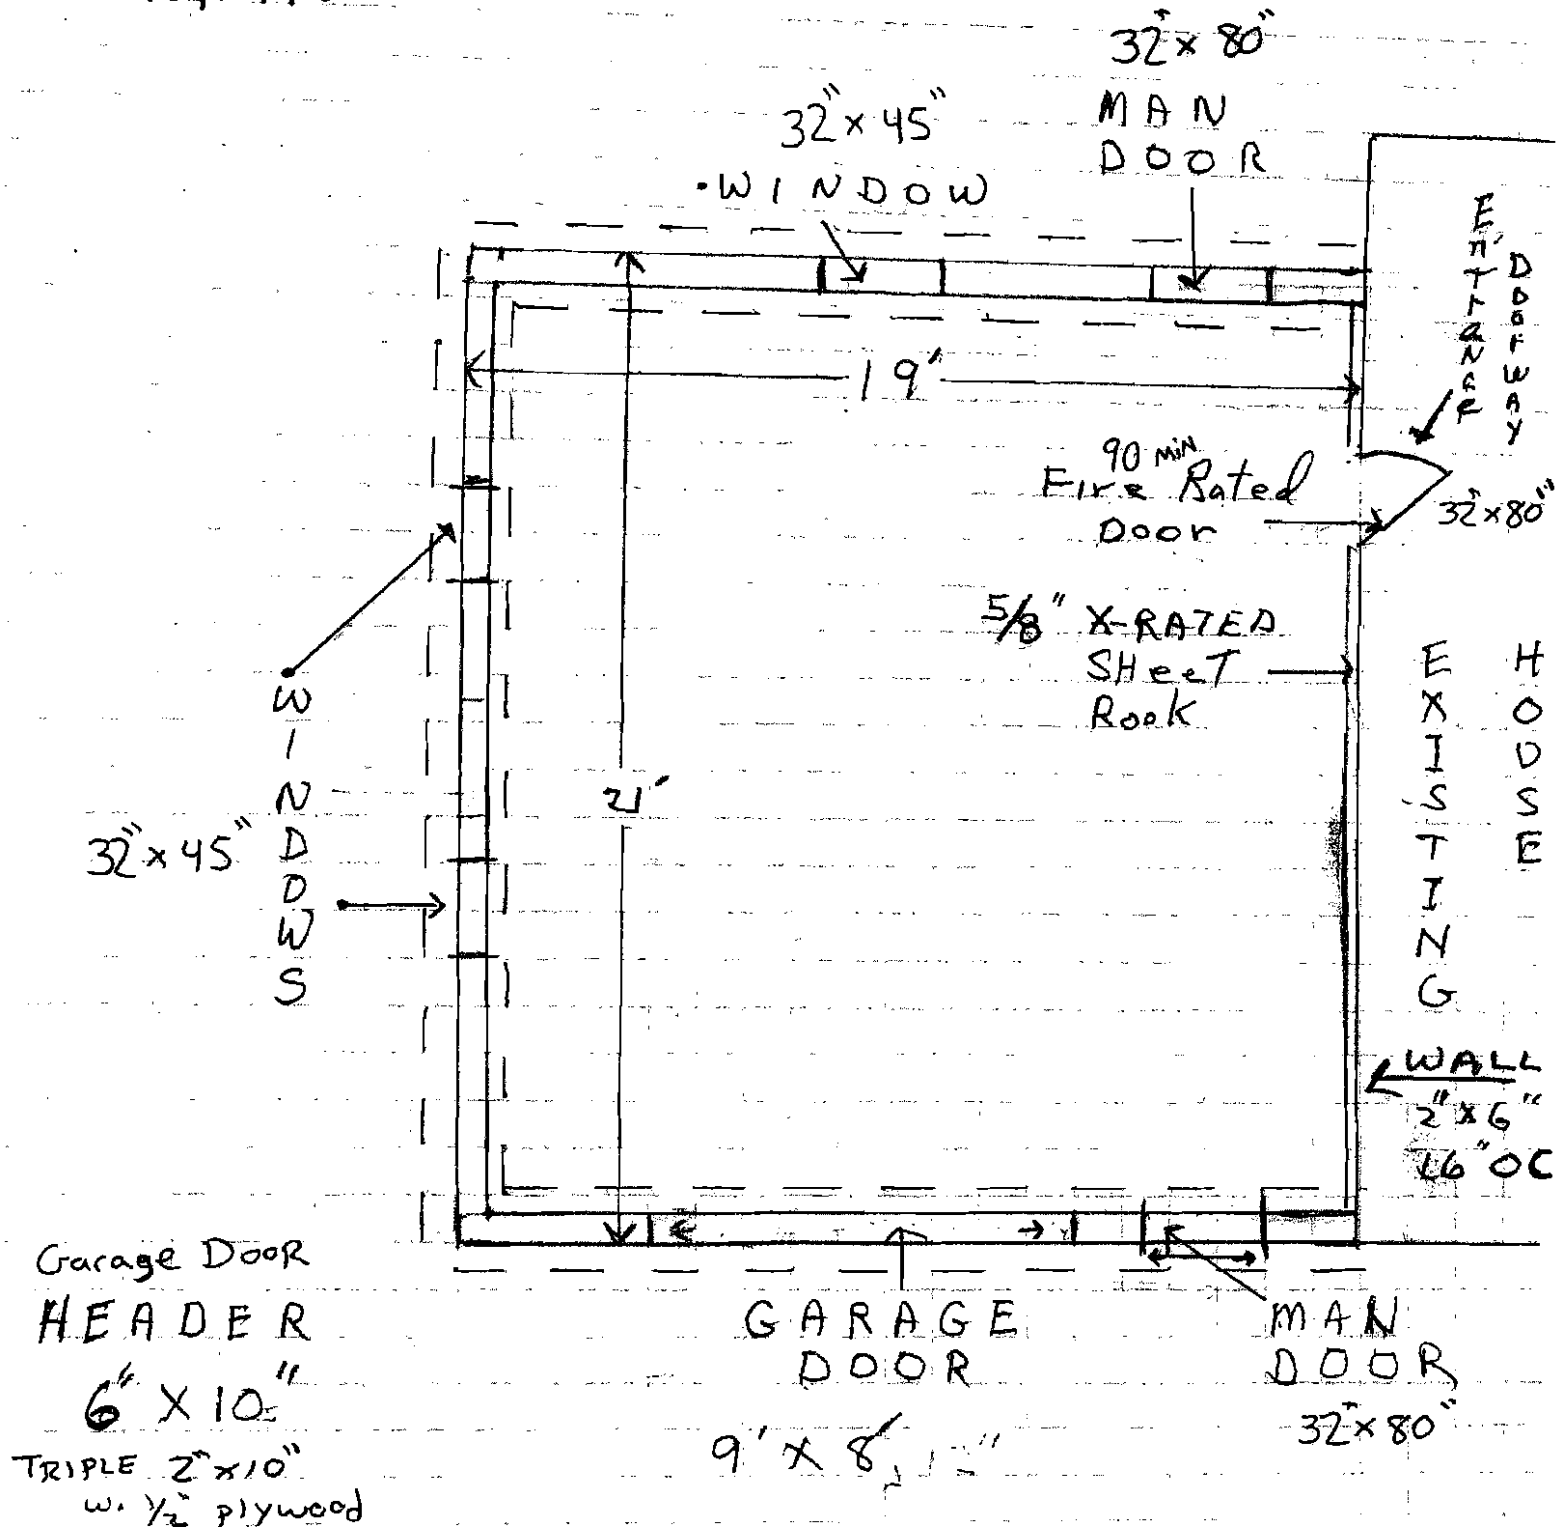 32" x 80"
MAN
DOOR
32" x 45"
WINDOW
ENTRANCE
DOORWAY
19'
90 MIN
Fire Rated
Door
32" x 80"
5/8" X-RATED
SHeeT
Rock
EXISTING
HOUSE
WINDOWS
32" x 45"
21'
WALL
2" x 6"
16" OC
Garage DooR
HEADER
6" X 10"
TRIPLE 2" x 10"
w. 1/2" plywood
GARAGE
DOOR
9' X 8'
MAN
DOOR
32" x 80"